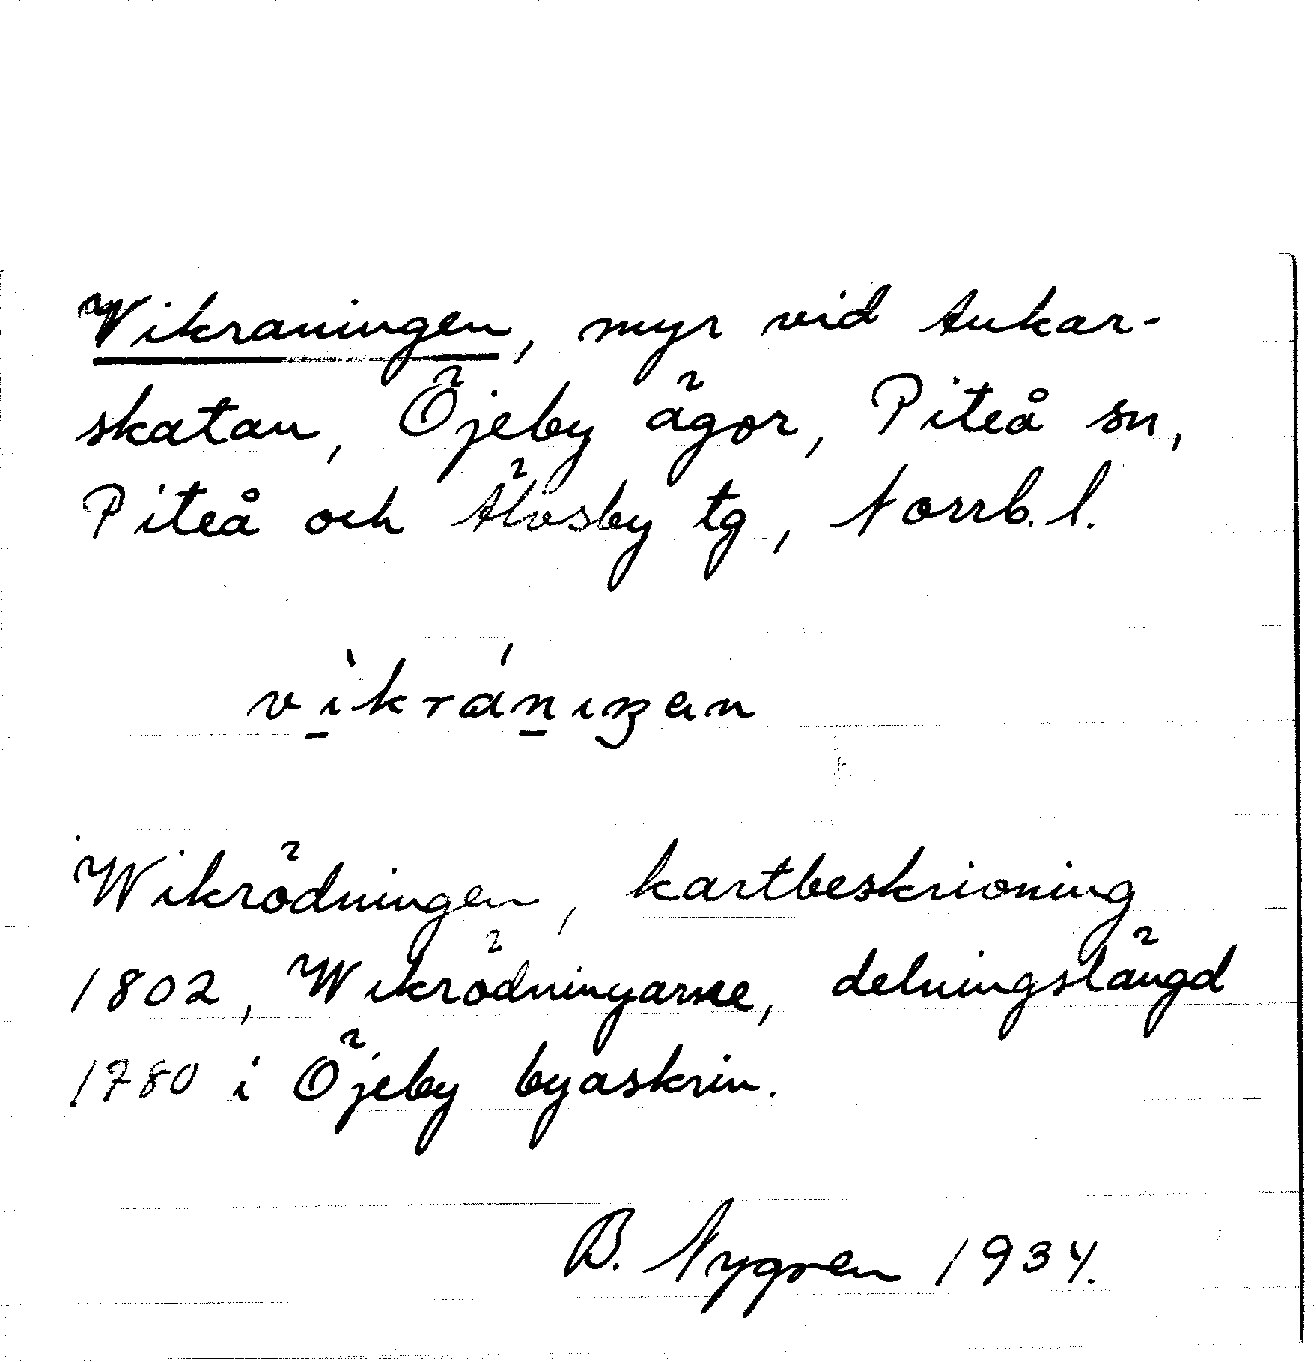 Vikraningen, myr vid Ankar-
skatan, Öjeby ägor, Piteå sn,
Piteå och Älvsby tg, Norrb. l.
Wikrödningen, kartbeskrivning
1802, Wikrödningarne, delningslängd
1780 i Öjeby byaskrin.
B. Nygren 1934.